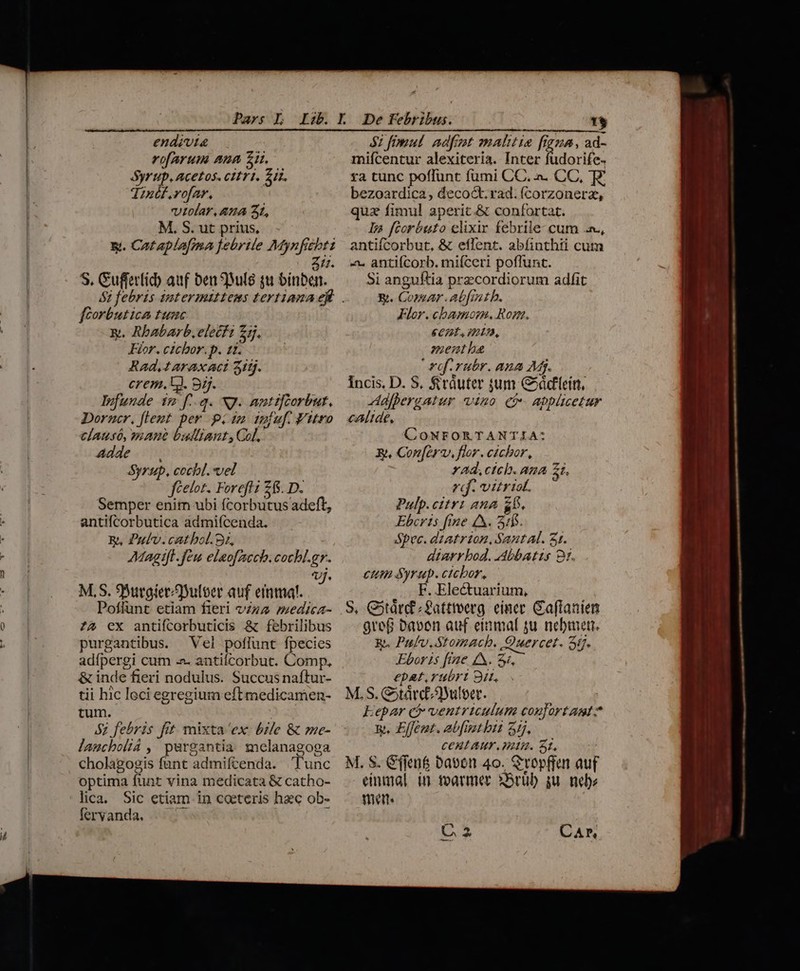 Pars I. Lib. I. De Febribus. 19
endiviæ
rosarum ana ℥ii.
Syrup. acetos. citri. ℥ii.
Tinct. rosar.
violar. ana ʒi.
M. S. ut prius.
℞. Cataplasma febrile Mynsichti
℥ii.
S. Eusserlich auf den Puls zu binden.
Si febris intermittens tertiana est
scorbutica tunc
℞. Rhabarb. electi ʒij.
Flor. cichor. p. ii.
Rad. taraxaci ʒiij.
Infunde in s. q. antiscorbut.
Dorncr. stent per p. in infus. Vitro
clausò, manè bulliant, Col.
adde
Syrup. cochl. vel
scelot. Foresti ℥ß. D.
Semper enim ubi scorbutus adest,
antiscorbutica admiscenda.
℞. Pulv. cathol. ℈i.
Magist. seu elæosacch. cochl. gr.
vj.
M. S. Purgier-Pulver auf einmal.
Possunt etiam fieri vina medica-
ta ex antiscorbuticis & febrilibus
purgantibus. Vel possunt species
adspergi cum antiscorbut. Comp.
& inde fieri nodulus. Succus nastur-
tii hîc loci egregium est medicamen-
tum.
Si febris sit mixta ex bile & me-
lancholiâ, purgantia melanagoga
cholagogis sunt admiscenda. Tunc
optima sunt vina medicata & catho-
lica. Sic etiam in cœteris hæc ob-
servanda.
Si simul adsint malitiæ signa, ad-
miscentur alexiteria. Inter sudorife-
ra tunc possunt sumi CC. CC.
bezoardica, decoct. rad. scorzoneræ,
quæ simul aperit & confortat.
In scorbuto elixir febrile cum
antiscorbut. & essent. absinthii cum
antiscorb. misceri possunt.
Si angustia præcordiorum adsit
℞. Comar. absinth.
Flor. chamom. Rom.
cent. min.
menthæ
ros. rubr. ana Mß.
Incis. D. S. Kräuter zum Säcklein.
Adspergatur vino & applicetur
calidè.
CONFORTANTIA:
℞. Conserv. flor. cichor.
rad. cich. ana ℥i.
ros. vitriol.
Pulp. citri ana ℥ß.
Eboris sine ʒiß.
Spec. diatrion. Santal. ʒi.
diarrhod. Abbatis ℈i.
cum Syrup. cichor.
F. Electuarium,
S. Stärck-Lattwerg einer Castanien
groß davon auf einmal zu nehmen.
℞. Pulv. Stomach. Quercet. ʒij.
Eboris sine ʒi.
epat. rubri ℈ii.
M. S. Stärck-Pulver.
Hepar & ventriculum confortant.
℞. Essent. absinthii ʒij.
centaur. min. ʒi.
M. S. Essenß davon 40. Tropffen auf
einmal in warmer Brüh zu neh-
men.
C 2 CAP.